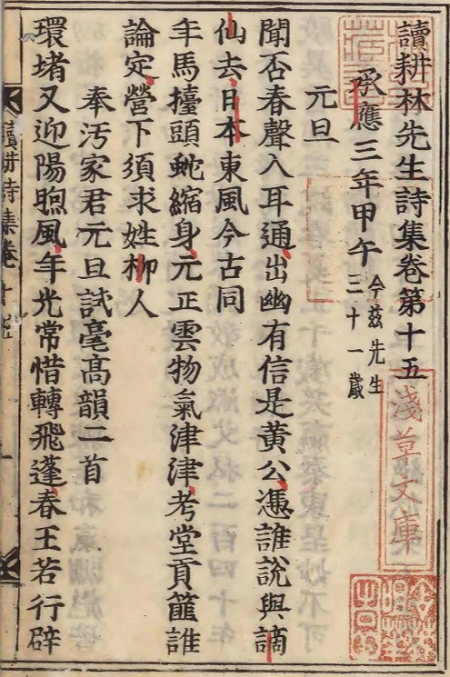 讀耕林先生詩集卷第十五
承應三年甲午今玆先生三十一歲
元旦
聞否春聲入耳通出幽有信是黃公憑誰說與謫
仙去日本東風今古同
年馬擡頭蛇縮身元正雲物氣津津考堂貢篚誰
論定營下須求姓柳人
奉汚家君元旦試毫高韻二首
環堵又迎陽煦風年光常惜轉飛蓬春王若行辟
讀耕詩集卷十五
淺草文庫